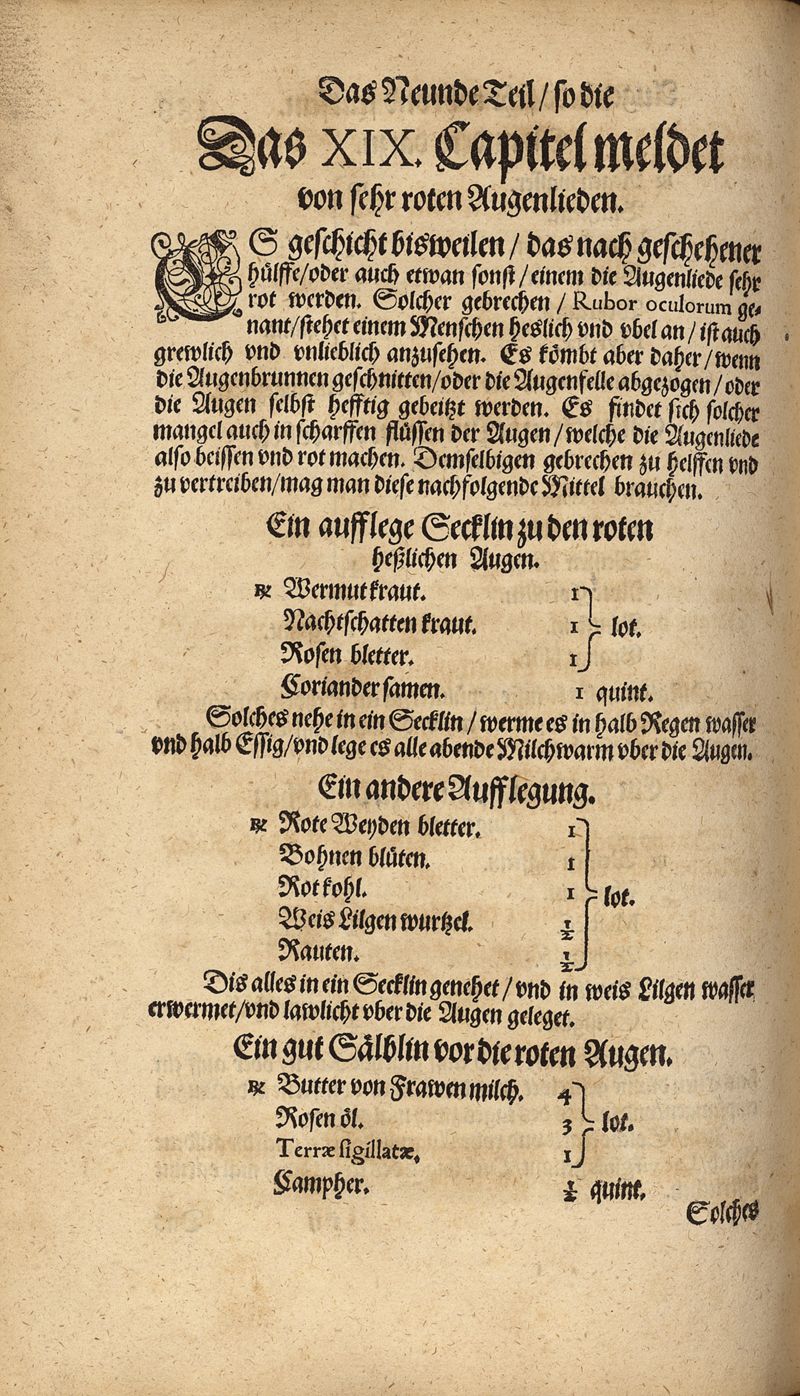 Das Neunde Teil / so die
Das XIX. Capitel meldet
von sehr roten Augenlieden.
ES geschicht bisweilen / das nach geschehener
hülffe / oder auch etwan sonst / einem die Augenliede sehr
rot werden. Solcher gebrechen / Rubor oculorum ge-
nant / stehet einem Menschen heslich vnd vbel an / ist auch
grewlich vnd vnlieblich anzusehen. Es kömbt aber daher / wenn
die Augenbrunnen geschnitten / oder die Augenfelle abgezogen / oder
die Augen selbst hefftig gebeitzt werden. Es findet sich solcher
mangel auch in scharffen flüssen der Augen / welche die Augenliede
also beissen vnd rot machen. Demselbigen gebrechen zu helffen vnd
zu vertreiben / mag man diese nachfolgende Mittel brauchen.
Ein aufflege Secklin zu den roten
heßlichen Augen.
℞ Wermut kraut. 1
Nachtschatten kraut. 1 lot.
Rosen bletter. 1
Coriander samen. 1 quint.
Solches nehe in ein Secklin / werme es in halb Regen wasser
vnd halb Essig / vnd lege es alle abende Milchwarm vber die Augen.
Ein andere Aufflegung.
℞ Rote Weyden bletter. 1
Bohnen blüten. 1
Rot kohl. 1 lot.
Weis Lilgen wurtzel. ½
Rauten. ½
Dis alles in ein Secklin genehet / vnd in weis Lilgen wasser
erwermet / vnd lawlicht vber die Augen geleget.
Ein gut Sälblin vor die roten Augen.
℞ Butter von Frawen milch. 4
Rosen öl. 3 lot.
Terræ sigillatæ. 1
Campher. ½ quint.
Solches